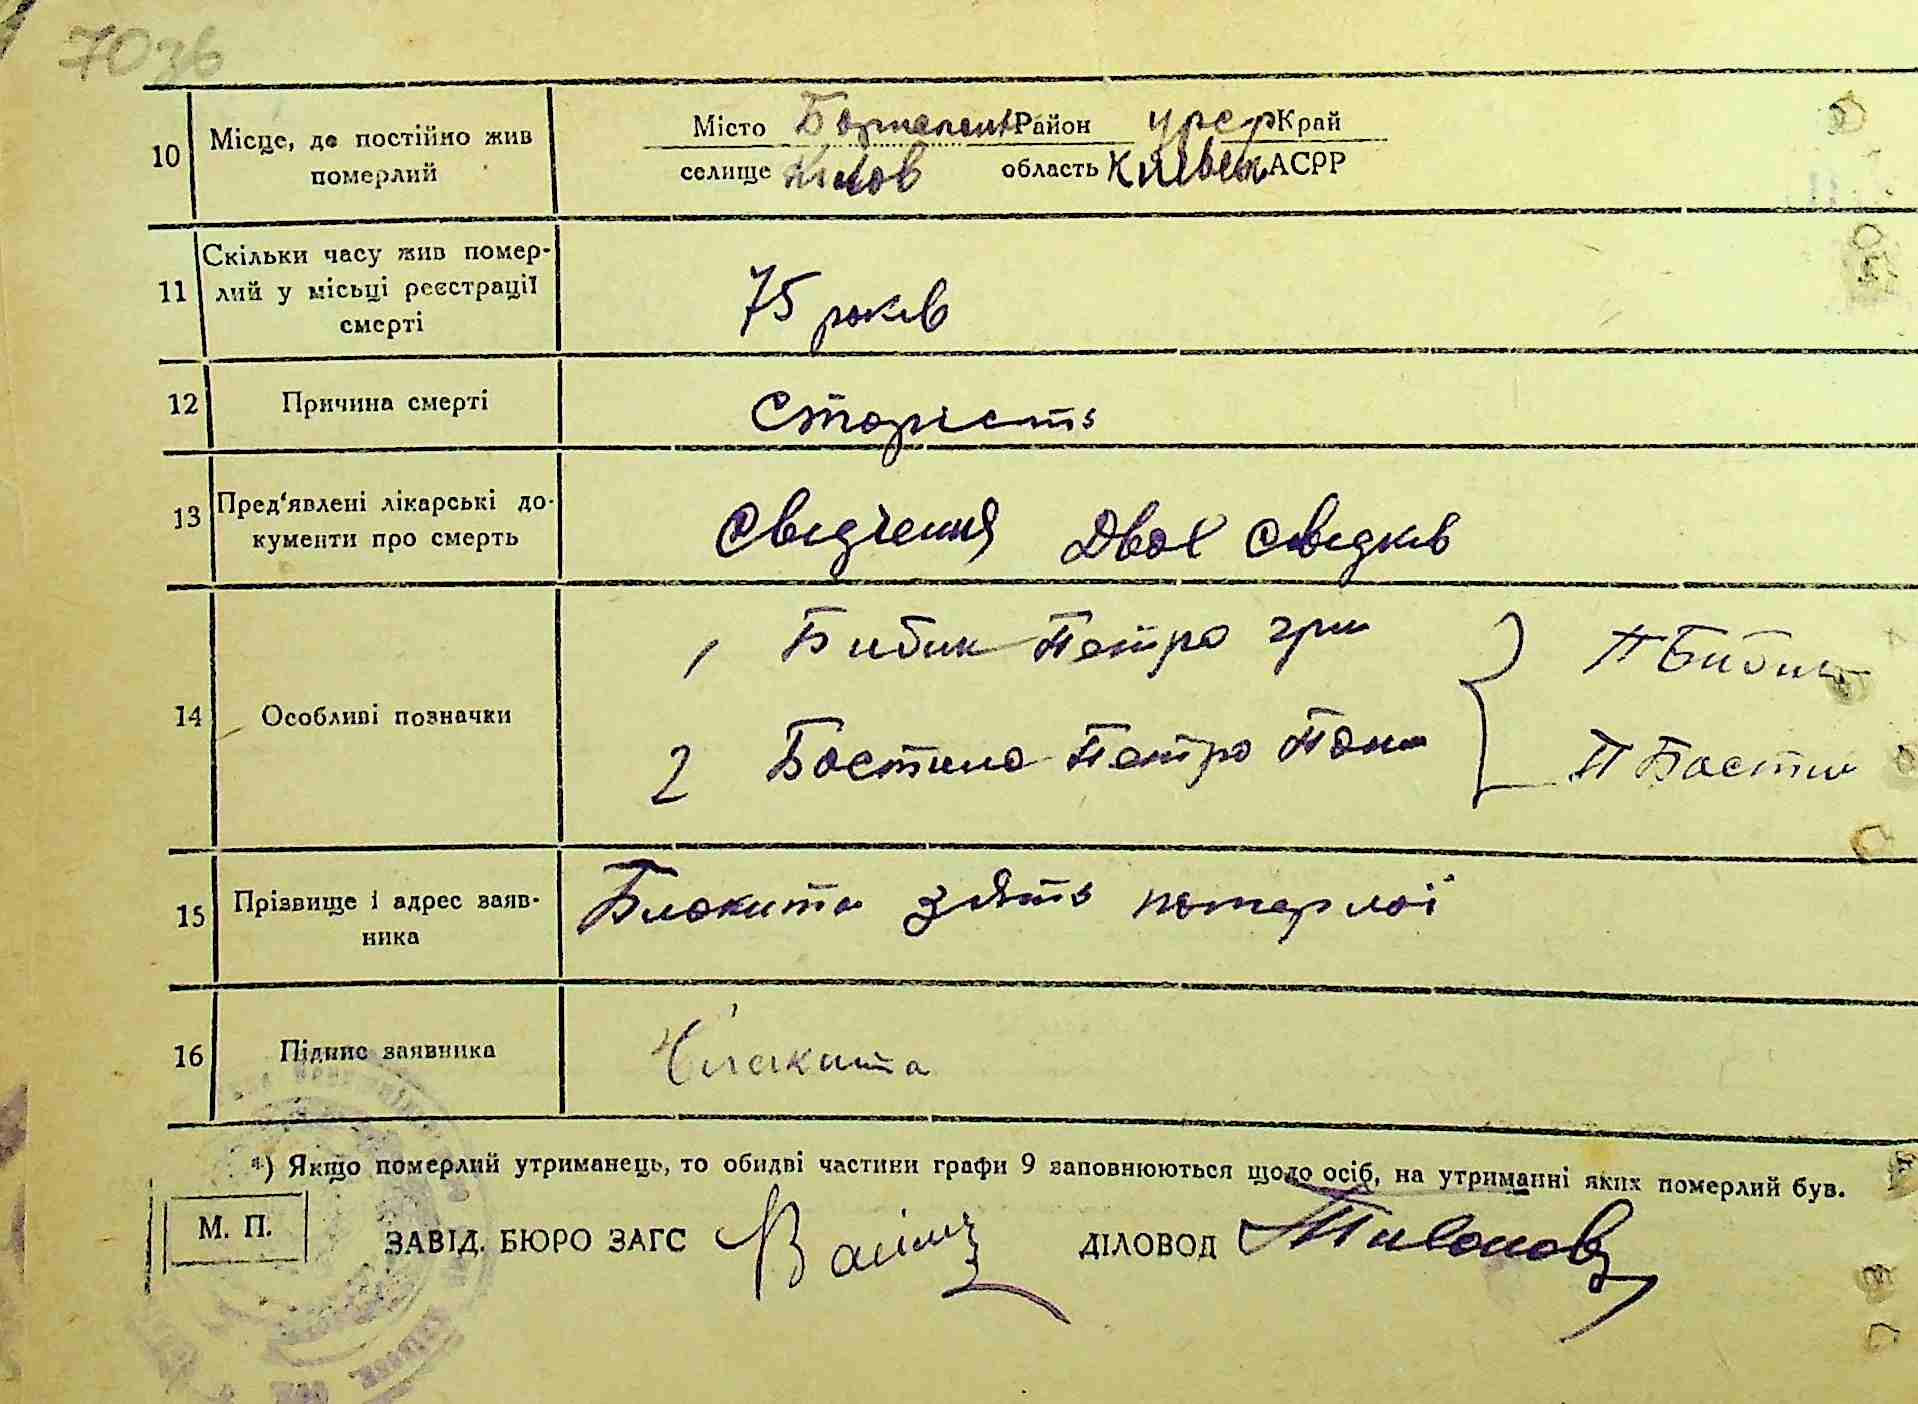 70зв
10 Місце, де постійно жив померлий
Місто Район УРСР Край
селище область АСРР
11 Скільки часу жив помер-
лий у місьці реєстрації
смерті
75 років
12 Причина смерті
Старість
13 Пред'явлені лікарські до-
кументи про смерть
Свідчення двох свідків
14 Особливі позначки
1 Бибик Петро Гри
П Бибик
2 Петро
П
15 Прізвище і адрес заяв-
ника
Блакита зять померлої
16 Підпис заявника
Блакита
*) Якщо померлий утриманець, то обидві частини графи 9 заповнюються щодо осіб, на утриманні яких померлий був.
М. П.
ЗАВІД. БЮРО ЗАГС ДІЛОВОД